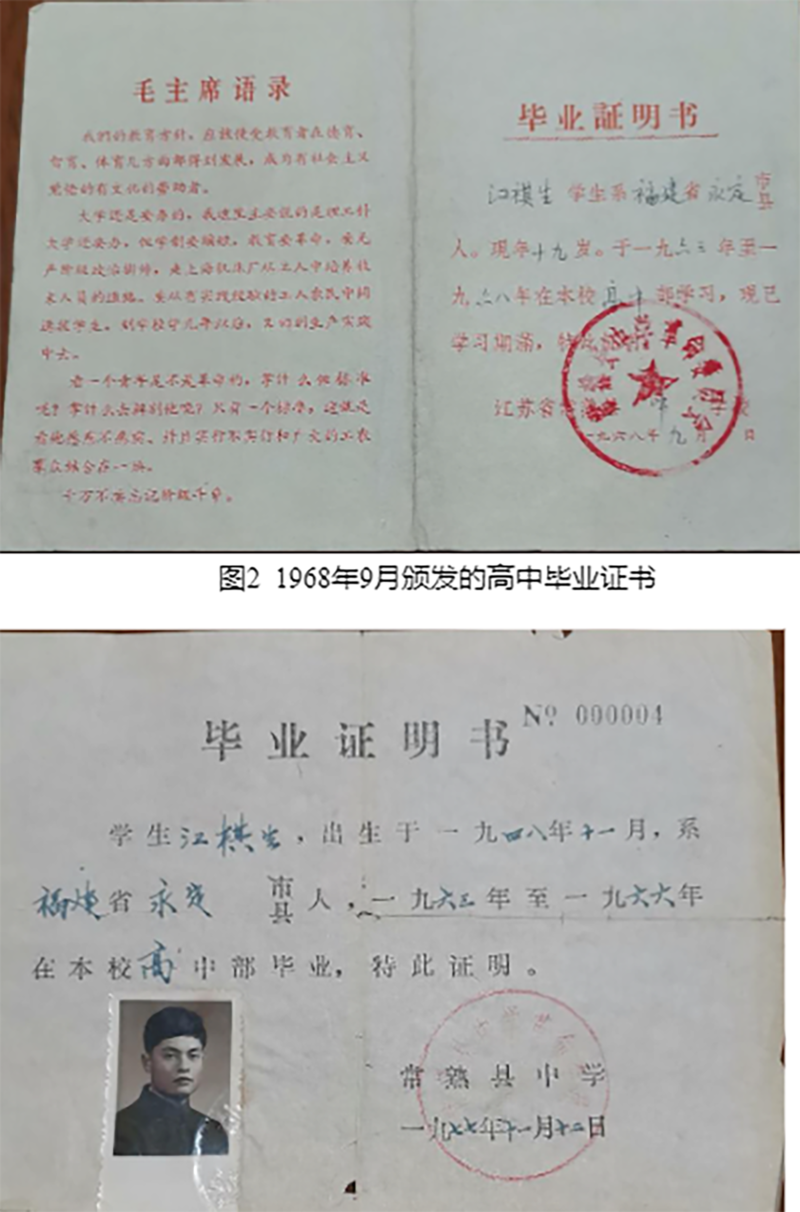 毛主席语录
我們的教育方針，应該使受教育者在德育、
智育、体育几方面都得到发展，成为有社会主义
觉悟的有文化的劳动者。
大学还是要办的，我这里主要说的是理工科
大学还要办，但学制要缩短，教育要革命，要无
产阶级政治掛帅，走上海机床厂从工人中培养技
术人员的道路。要从有实践经驗的工人农民中間
选拔学生，到学校学几年以后，又回到生产实践
中去。
看一个青年是不是革命的，拿什么做标准
呢？拿什么去辨别他呢？只有一个标准，这就是
看他愿意不愿意、幷且实行不实行和广大的工农
羣众结合在一块。
千万不要忘记阶级斗争。
毕业証明书
江棋生 学生系福建省永定市县
人。现年十九岁。于一九六三年至一
九六八年在本校高中部学习，现已
学习期满，特此
江苏省
一九六八年九月 日
图2 1968年9月颁发的高中毕业证书
毕业证明书
№ 000004
学生江棋生，出生于一九四八年十一月，系
福建省永定市县人，一九六三年至一九六六年
在本校高中部毕业，特此证明。
常熟县中学
一九七七年十一月十二日